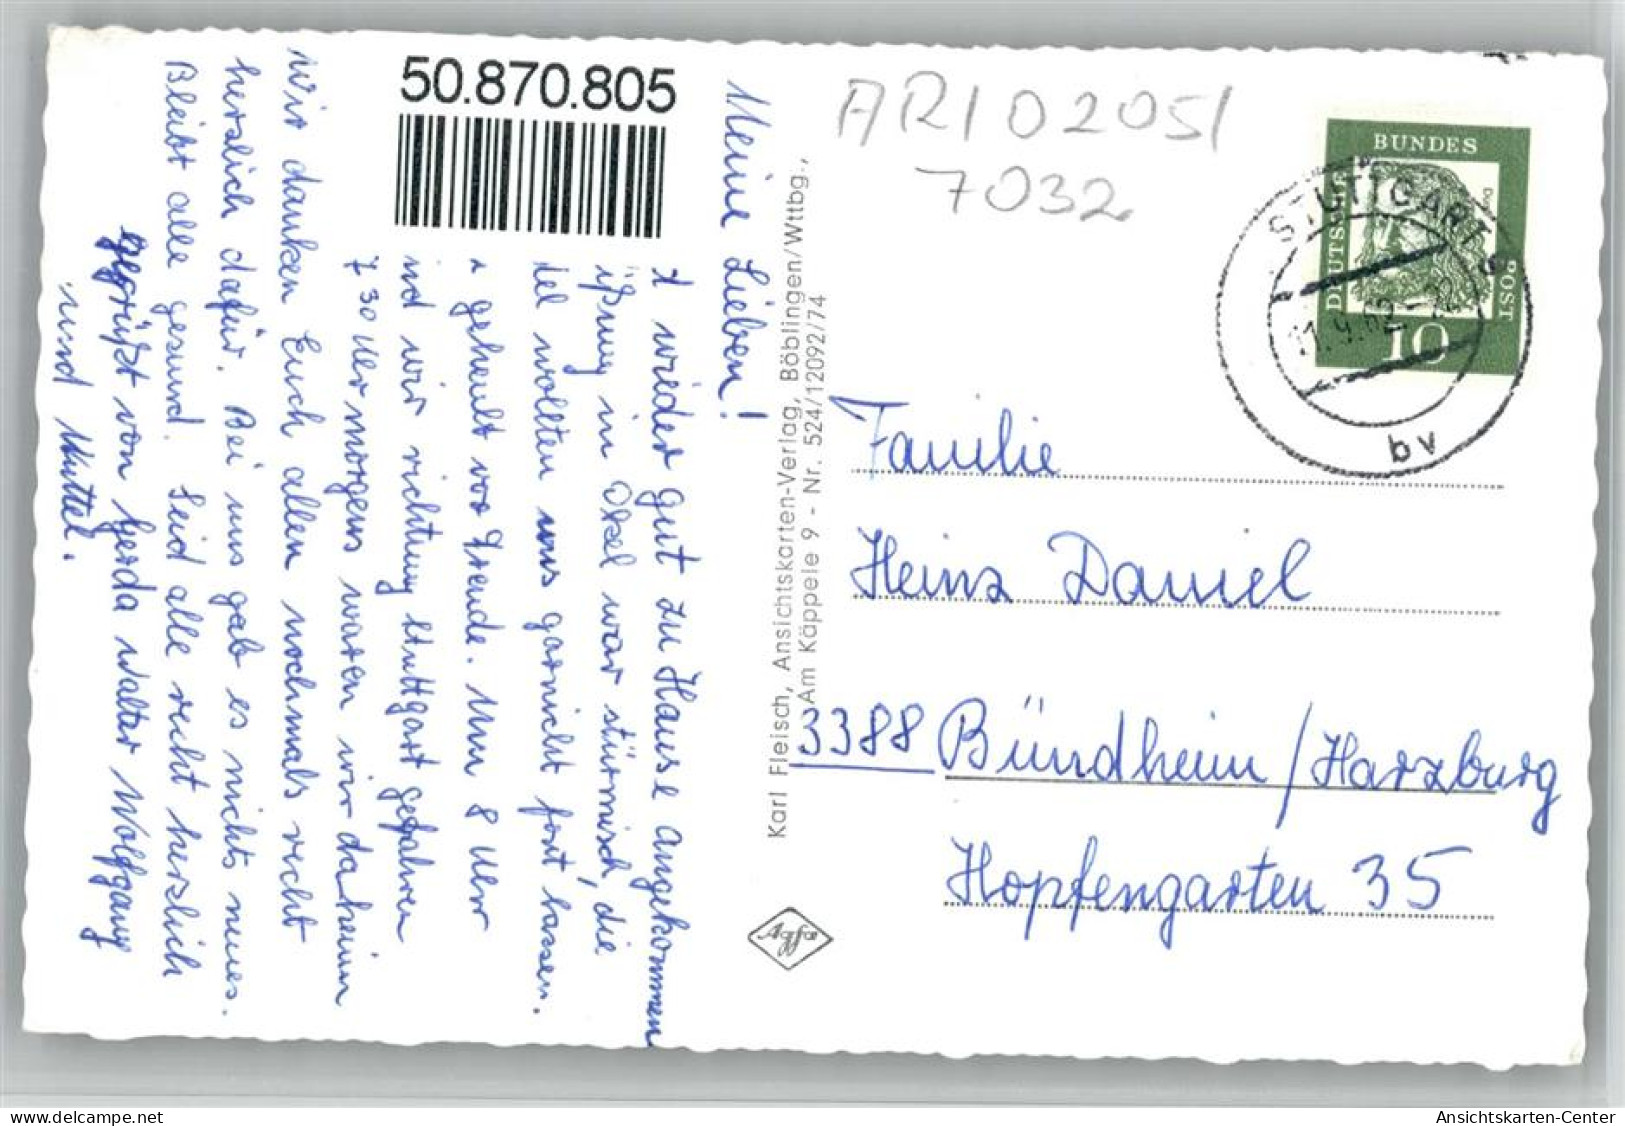 50.870.805
AR10205/
7032
DEUTSCHE
BUNDES
POST
10
STUTTGART 9
11.9.62.-22
bv
Meine Lieben!
t wieder gut zu Hause angekommen
ißung in Okel war stürmisch, die
el wollten uns garnicht fort lassen.
geheult vor Freude. Um 8 Uhr
nd wir richtung Stuttgart gefahren
7 30 Uhr morgens waren wir daheim
Wir danken Euch allen nochmals recht
herzlich dafür. Bei uns gab es nichts neues.
Bleibt alle gesund. Seid alle recht herzlich
gegrüßt von Gerda Walter Wolfgang
und Muttel.
Karl Fleisch, Ansichtskarten-Verlag, Böblingen/Wttbg.,
Am Käppele 9 - Nr. 524/12092/74
Agfa
Familie
Heinz Daniel
3388 Bündheim/Harzburg
Hopfengarten 35
www.delcampe.net
cartes_postales
Ansichtskarten-Center